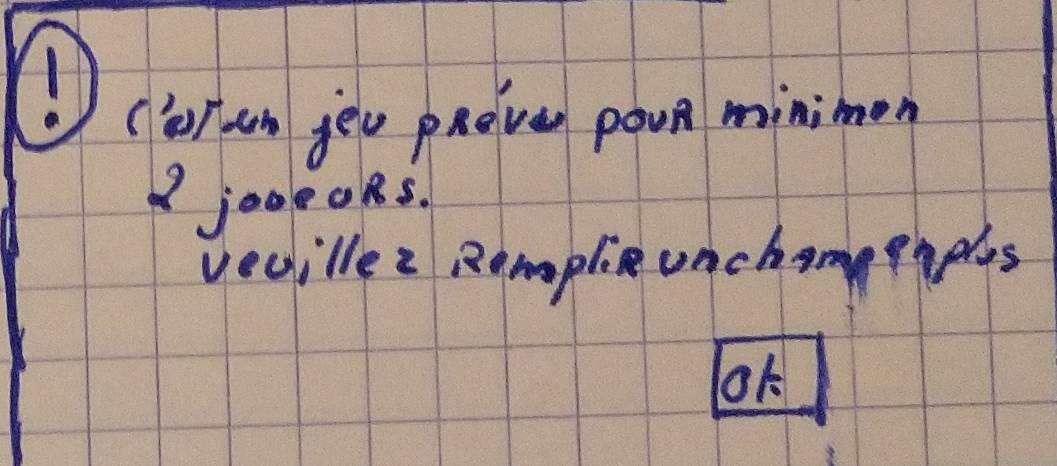 !
c'est un jeu prévu pour minimon
2 joueurs.
veuillez remplir un champ en plus
OK